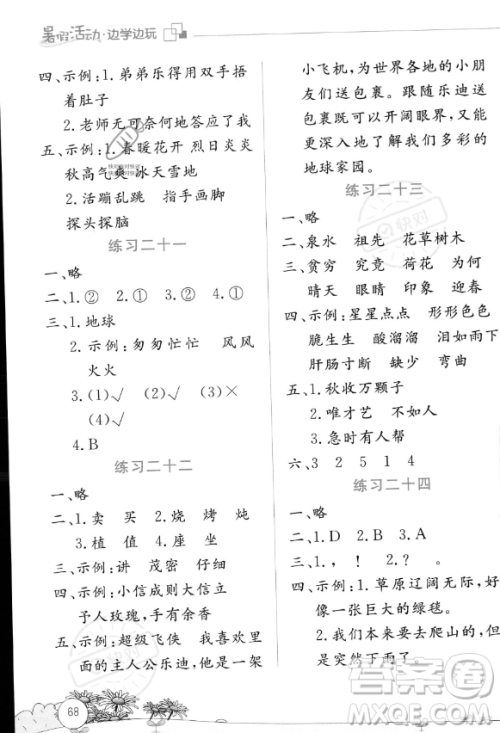 暑假活动·边学边玩
四、示例:1. 弟弟乐得用双手捂
着肚子
2. 老师无可奈何地答应了我
五、示例:1. 春暖花开 烈日炎炎
秋高气爽 冰天雪地
2. 活蹦乱跳 指手画脚
探头探脑
练习二十一
一、略
二、1. ② 2. ① 3. ② 4. ①
三、1. 地球
2. 示例:匆匆忙忙 风风
火火
3. (1)√ (2)√ (3)×
(4)√
4. B
练习二十二
一、略
二、1. 卖 买 2. 烧 烤 炖
3. 植 值 4. 座 坐
三、示例:讲 茂密 仔细
四、示例:小信成则大信立
予人玫瑰,手有余香
五、示例:超级飞侠 我喜欢里
面的主人公乐迪,他是一架
68
小飞机,为世界各地的小朋
友们送包裹。跟随乐迪送
包裹既可以开阔眼界,又能
更深入地了解我们多彩的
地球家园。
练习二十三
一、略
二、泉水 祖先 花草树木
三、贫穷 究竟 荷花 为何
晴天 眼睛 印象 迎春
四、示例:星星点点 形形色色
脆生生 酸溜溜 泪汪汪
肝肠寸断 缺少 弯曲
五、1. 秋收万颗子
2. 唯才艺 不如人
3. 急时有人帮
六、3 2 5 1 4
练习二十四
一、略
二、1. D 2. B 3. A
三、1. , ! 2. ? 。
四、示例:1. 草原辽阔无际,好
像一张巨大的绿毯。
2. 我们本来要去爬山的,但
突然下雨了。
答案圈
MXQE.COM
快对